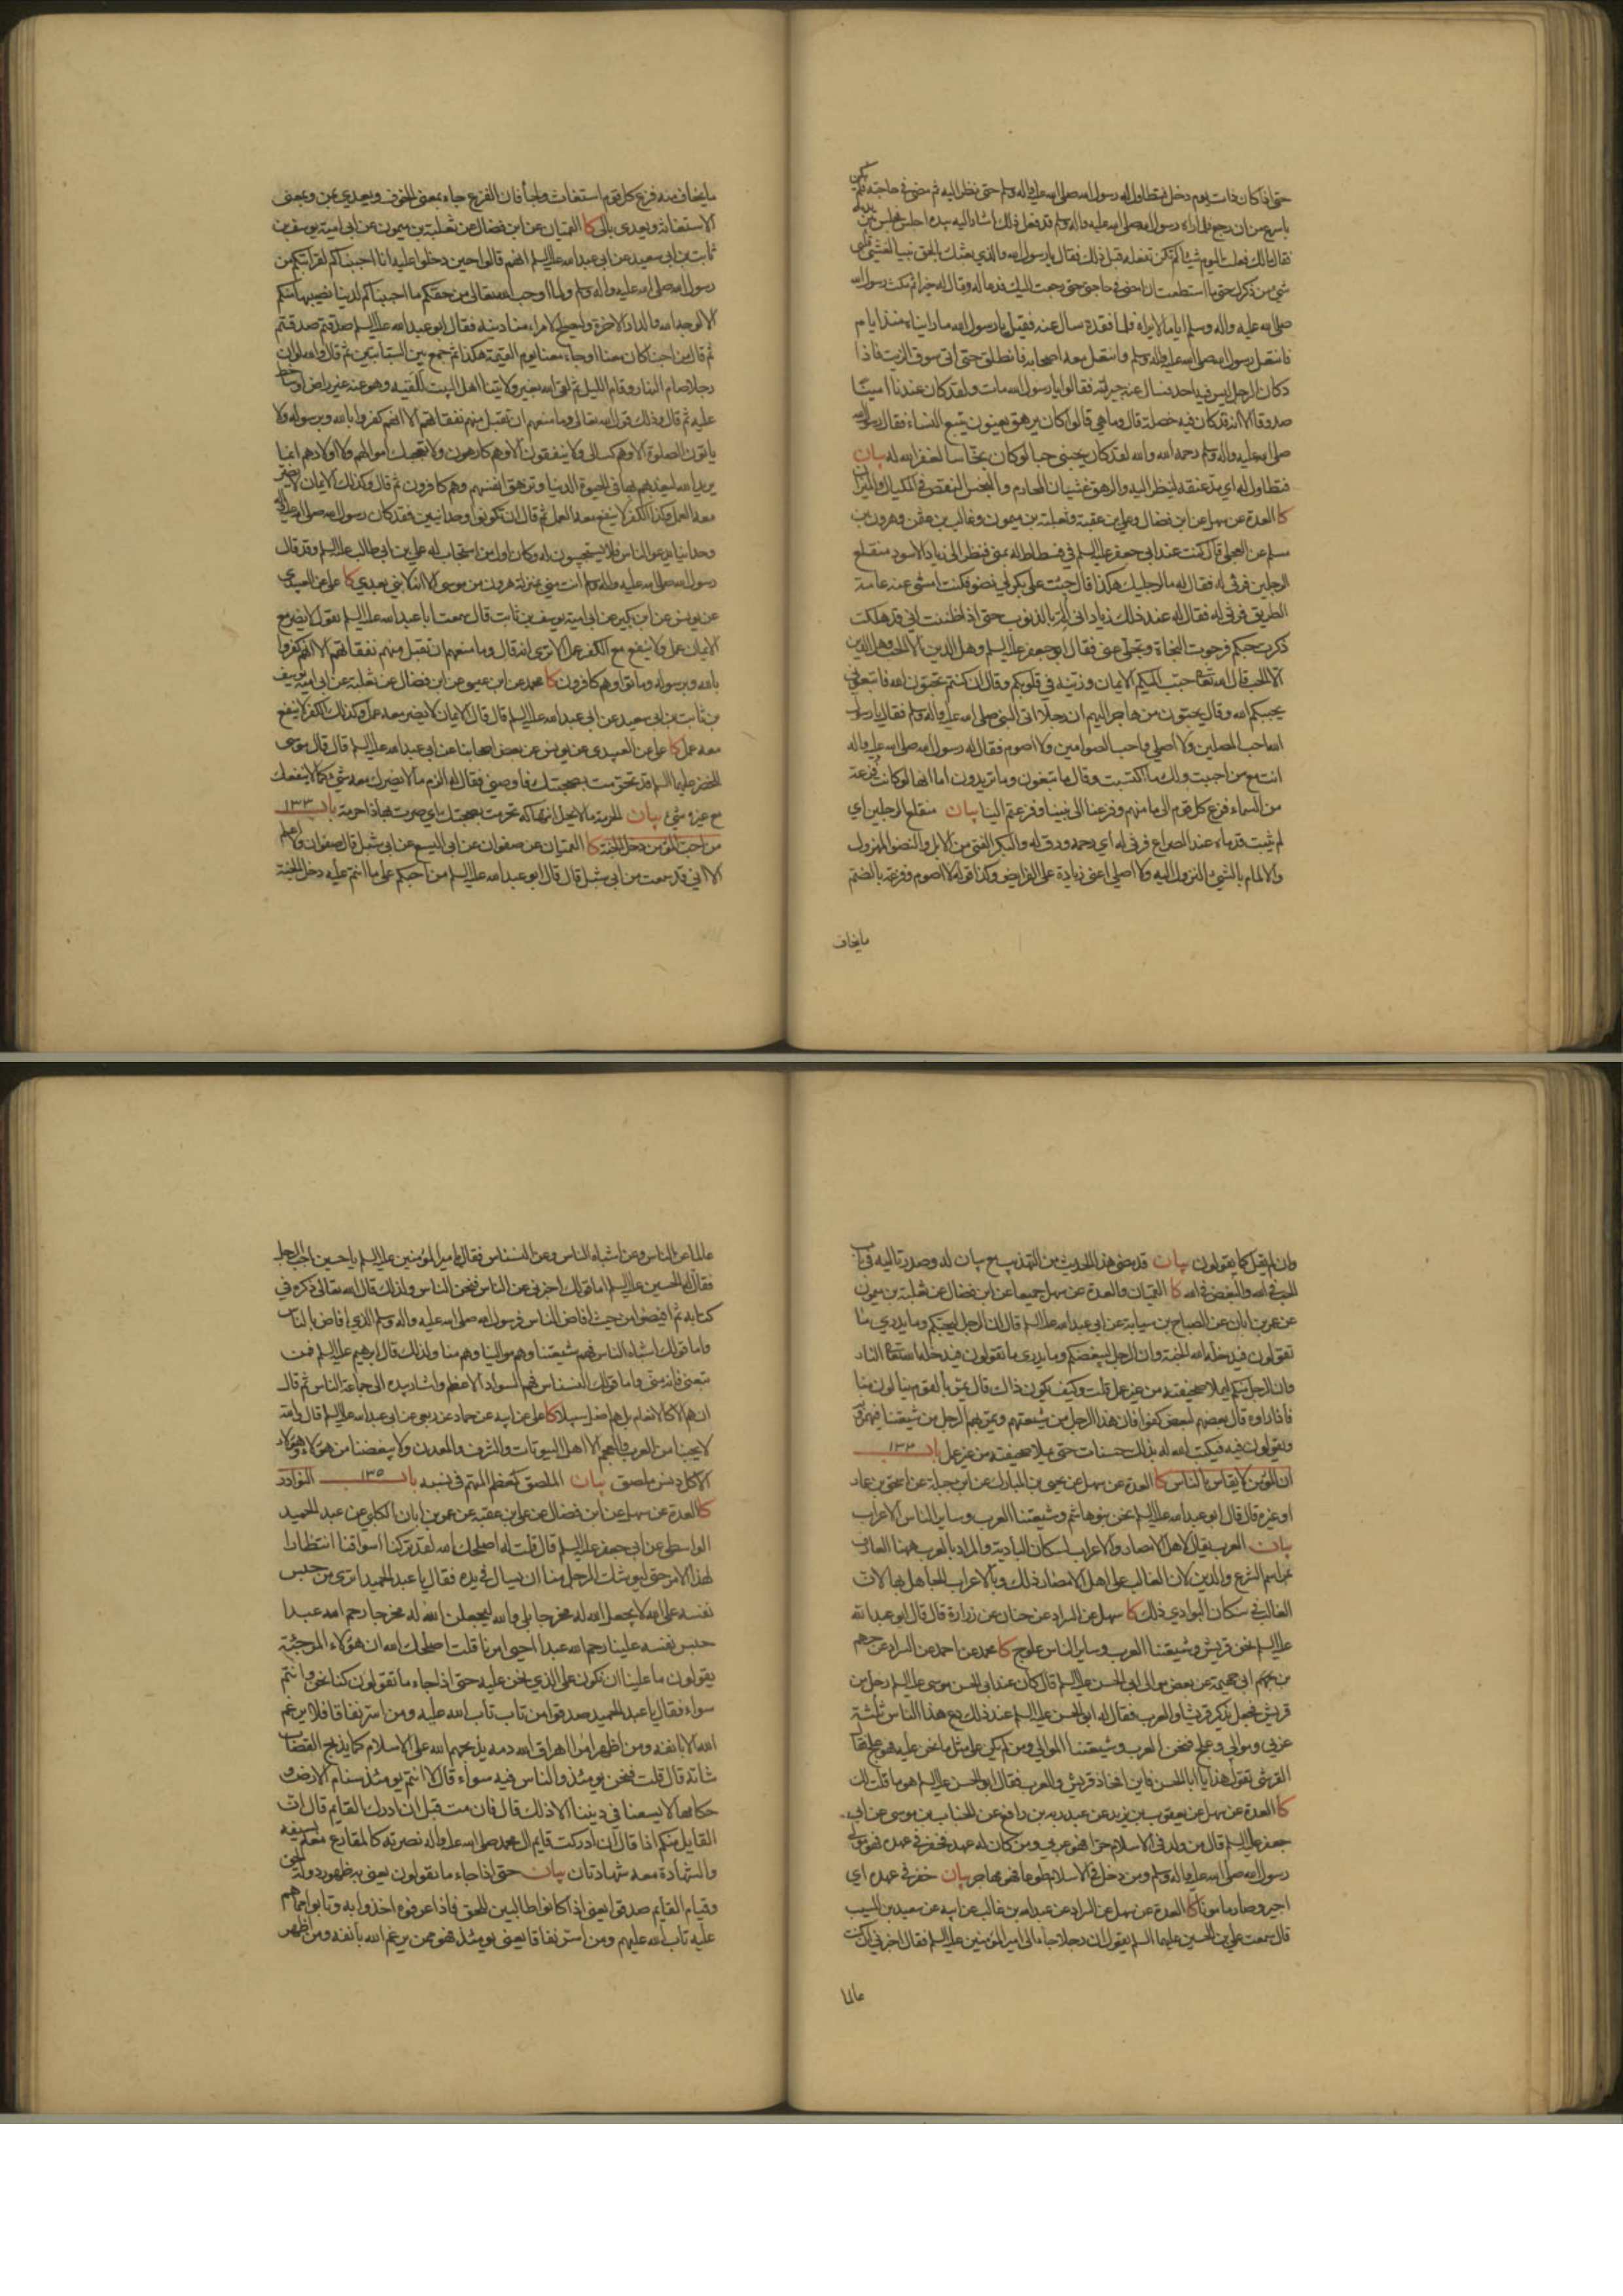 حتى اذا كان ذات يوم دخل فتطاول له رسول الله صلى الله عليه واله وسلم حتى نظر اليه ثم مضى في حاجته فلم يكن
باسرع من ان رجع فلما راه رسول الله صلى الله عليه واله وسلم قد فعل ذلك اشار اليه بيده اجلس فجلس بين يديه
فقال مالك فعلت اليوم شيئا لم تكن تفعله قبل ذلك فقال يا رسول الله والذي بعثك بالحق نبيا لغشي قلبي
شيء من ذكرك حتى ما استطعت ان امضي في حاجتي حتى رجعت اليك فدعا له وقال له خيرا ثم مكث رسول الله
صلى الله عليه واله وسلم اياما لا يراه فلما فقده سال عنه فقيل يا رسول الله ما رايناه منذ ايام
فانتعل رسول الله صلى الله عليه واله وسلم وانتعل معه اصحابه فانطلق حتى اتى سوق الزيت فاذا
دكان الرجل ليس فيه احد فسال عنه جيرته فقالوا يا رسول الله مات ولقد كان عندنا امينا
صدوقا الا انه قد كان فيه خصلة قال وما هي قالوا كان يرهق يعنون يتبع النساء فقال رسول الله
صلى الله عليه واله وسلم رحمه الله والله لقد كان يحبني حبا لو كان نخاسا لغفر الله له بيان
فتطاول له اي مد عنقه لينظر اليه والرهق غشيان المحارم والبخس النقص في المكيال والميزان
كا العدة عن سهل عن ابن فضال وعلي بن عقبة وثعلبة بن ميمون وغالب بن عثمن وهرون بن
مسلم عن العجلي قال كنت عند ابي جعفر عليه السلم في فسطاط له بمنى فنظر الى زياد الاسود منقلع
الرجلين فرثى له فقال له ما لرجليك هكذا قال جئت على بكر لي نضو فكنت امشي عنه عامة
الطريق فرثى له فقال له عند ذلك زياد اني الم بالذنوب حتى اذا ظننت اني قد هلكت
ذكرت حبكم فرجوت النجاة وتجلى عني فقال ابو جعفر عليه السلم وهل الدين الا الحب وهل الدين
الا الحب قال الله تعالى حبب اليكم الايمان وزينه في قلوبكم وقال ان كنتم تحبون الله فاتبعوني
يحببكم الله وقال يحبون من هاجر اليهم ان رجلا اتى النبي صلى الله عليه واله وسلم فقال يا رسول
الله احب المصلين ولا اصلي واحب الصوامين ولا اصوم فقال له رسول الله صلى الله عليه واله
انت مع من احببت ولك ما اكتسبت وقال ما تبغون وما تريدون اما انها لو كانت فزعة
من السماء فزع كل قوم الى مامنهم وفزعنا الى نبينا وفزعتم الينا بيان منقلع الرجلين اي
لم يثبت قدماه عند الصراع فرثى له اي رحمه ورق له والبكر الفتي من الابل والنضو المهزول
والالمام بالشيء النزول اليه ولا اصلي اعني زيادة على الفرايض وكذا قوله لا اصوم وفزعة بالضم
ما يخاف
ما يخاف منه فزع كل قوم استغاث ولجأ فان الفزع جاء بمعنى الخوف ويعدى بمن وبمعنى
الاستغاثة ويعدى بالى كا القميان عن ابن فضال عن ثعلبة بن ميمون عن ابي امية يوسف بن
ثابت بن ابي سعيد عن ابي عبد الله عليه السلم انهم قالوا حين دخلوا عليه انا احببناكم لقرابتكم من
رسول الله صلى الله عليه واله وسلم ولما اوجب الله تعالى من حقكم ما احببناكم لدنيا نصيبها منكم
الا لوجه الله والدار الاخرة وليصلح لامرء منا دينه فقال ابو عبد الله عليه السلم صدقتم صدقتم
ثم قال من احبنا كان معنا او جاء معنا يوم القيمة هكذا ثم جمع بين السبابتين ثم قال والله لو ان
رجلا صام النهار وقام الليل ثم لقي الله بغير ولايتنا اهل البيت للقيه وهو عنه غير راض او ساخط
عليه ثم قال وذلك قول الله تعالى وما منعهم ان تقبل منهم نفقاتهم الا انهم كفروا بالله وبرسوله ولا
ياتون الصلوة الا وهم كسالى ولا ينفقون الا وهم كارهون ولا تعجبك اموالهم ولا اولادهم انما
يريد الله ليعذبهم بها في الحيوة الدنيا وتزهق انفسهم وهم كافرون ثم قال وكذلك الايمان لا يضر
معه العمل وكذا الكفر لا ينفع معه العمل ثم قال ان تكونوا وحدانيين فقد كان رسول الله صلى الله عليه واله
وحدانيا يدعو الناس فلا يستجيبون له وكان اول من استجاب له علي بن ابي طالب عليه السلم وقد قال
رسول الله صلى الله عليه واله وسلم انت مني بمنزلة هرون من موسى الا انه لا نبي بعدي كا علي عن العبيدي
عن يونس عن ابن بكير عن ابي امية يوسف بن ثابت قال سمعت ابا عبد الله عليه السلم يقول لا يضر مع
الايمان عمل ولا ينفع مع الكفر عمل الا ترى انه قال وما منعهم ان تقبل منهم نفقاتهم الا انهم كفروا
بالله وبرسوله وماتوا وهم كافرون كا محمد عن ابن عيسى عن ابن فضال عن ثعلبة عن ابي امية يوسف
بن ثابت بن ابي سعيد عن ابي عبد الله عليه السلم قال قال الايمان لا يضر معه عمل وكذلك الكفر لا ينفع
معه عمل كا علي عن العبيدي عن يونس عن بعض اصحابنا عن ابي عبد الله عليه السلم قال قال موسى
للخضر عليهما السلم قد تحرمت بصحبتك فاوصني فقال له الزم ما لا يضرك معه شيء كما لا ينفعك
مع غيره شيء بيان الحرمة ما لا يحل انتهاكه تحرمت بصحبتك اي صرت بها ذا حرمة باب ١٣٣
من احب المؤمن دخل الجنة كا القميان عن صفوان عن ابي اليسع عن ابي شبل قال صفوان ولا اعلم
الا اني قد سمعت من ابي شبل قال قال ابو عبد الله عليه السلم من احبكم على ما انتم عليه دخل الجنة
وان لم يقل كما يقولون بيان قد مضى هذا الحديث من التهذيب مع بيان له وصدر تاليه في باب
الحب في الله والبغض في الله كا القميان والعدة عن سهل جميعا عن ابن فضال عن ثعلبة بن ميمون
عن عمر بن ابان عن الصباح بن سيابة عن ابي عبد الله عليه السلم قال ان الرجل ليحبكم وما يدري ما
تقولون فيدخله الله الجنة وان الرجل ليبغضكم وما يدري ما تقولون فيدخله الله تعالى النار
وان الرجل منكم ليملا صحيفته من غير عمل قلت وكيف يكون ذاك قال يمر بالقوم ينالون منا
فاذا راوه قال بعضهم لبعض كفوا فان هذا الرجل من شيعتهم ويمر بهم الرجل من شيعتنا فيهمزونه
ويقولون فيه فيكتب الله له بذلك حسنات حتى يملا صحيفته من غير عمل باب ١٣٤
ان المؤمن لا يقاس بالناس كا العدة عن سهل عن يحيى بن المبارك عن ابن جبلة عن اسحق بن عمار
او غيره قال قال ابو عبد الله عليه السلم نحن بنو هاشم وشيعتنا العرب وساير الناس الاعراب
بيان العرب يقال لاهل الامصار والاعراب لسكان البادية والمراد بالعرب ههنا العارف
بمراسم الشرع والدين لان الغالب على اهل الامصار ذلك وبالاعراب الجاهل بها لان
الغالب في سكان البوادي ذلك كا سهل عن السراد عن حنان عن زرارة قال قال ابو عبد الله
عليه السلم نحن قريش وشيعتنا العرب وساير الناس علوج كا محمد عن احمد عن السراد عن جهم
بن جهم ابي جهيمة عن بعض موالي ابي الحسن عليه السلم قال كان عند ابي الحسن موسى عليه السلم رجل من
قريش فجعل يذكر قريشا والعرب فقال له ابو الحسن عليه السلم عند ذلك دع هذا الناس ثلثة
عربي ومولى وعلج فنحن العرب وشيعتنا الموالي ومن لم يكن على مثل ما نحن عليه فهو علج فقال
القرشي تقول هذا يا ابا الحسن فاين افخاذ قريش والعرب فقال ابو الحسن عليه السلم هو ما قلت لك
كا العدة عن سهل عن يعقوب بن يزيد عن عبد ربه بن رافع عن الحباب بن موسى عن ابي
جعفر عليه السلم قال من ولد في الاسلام حرا فهو عربي ومن كان له عهد فخفر في عهده فهو مولى
رسول الله صلى الله عليه واله وسلم ومن دخل في الاسلام طوعا فهو مهاجر بيان خفر في عهده اي
اجير وصار مامونا كا العدة عن سهل عن السراد عن عبد الله بن غالب عن ابيه عن سعيد بن المسيب
قال سمعت علي بن الحسين عليهما السلم يقول ان رجلا جاء الى امير المؤمنين عليه السلم فقال اخبرني ان كنت
عالما
عالما عن الناس وعن اشباه الناس وعن النسناس فقال امير المؤمنين عليه السلم يا حسين اجب الرجل
فقال له الحسين عليه السلم اما قولك اخبرني عن الناس فنحن الناس ولذلك قال الله تعالى ذكره في
كتابه ثم افيضوا من حيث افاض الناس فرسول الله صلى الله عليه واله وسلم الذي افاض بالناس
واما قولك اشباه الناس فهم شيعتنا وهم موالينا وهم منا ولذلك قال ابرهيم عليه السلم فمن
تبعني فانه مني واما قولك النسناس فهم السواد الاعظم واشار بيده الى جماعة الناس ثم قال
ان هم الا كالانعام بل هم اضل سبيلا كا علي عن ابيه عن حماد عن ربعي عن ابي عبد الله عليه السلم قال والله
لا يحبنا من العرب والعجم الا اهل البيوتات والشرف والمعدن ولا يبغضنا من هؤلاء وهؤلاء
الا كل دنس ملصق بيان الملصق كمعظم المتهم في نسبه باب ١٣٥ النوادر
كا العدة عن سهل عن ابن فضال عن علي بن عقبة عن عمر بن ابان الكلبي عن عبد الحميد
الواسطي عن ابي جعفر عليه السلم قال قلت له اصلحك الله لقد تركنا اسواقنا انتظارا
لهذا الامر حتى ليوشك الرجل منا ان يسال في يده فقال يا عبد الحميد اترى من حبس
نفسه على الله لا يجعل الله له مخرجا بلى والله ليجعلن الله له مخرجا رحم الله عبدا
حبس نفسه علينا رحم الله عبدا احيى امرنا قلت اصلحك الله ان هؤلاء المرجئة
يقولون ما علينا ان نكون على الذي نحن عليه حتى اذا جاء ما تقولون كنا نحن وانتم
سواء فقال يا عبد الحميد صدقوا من تاب تاب الله عليه ومن اسر نفاقا فلا يرغم
الله الا بانفه ومن اظهر امرنا اهراق الله دمه يذبحهم الله على الاسلام كما يذبح القصاب
شاته قال قلت فنحن يومئذ والناس فيه سواء قال لا انتم يومئذ سنام الارض و
حكامها لا يسعنا في ديننا الا ذلك قال فان مت قبل ان ادرك القايم قال ان
القايل منكم اذا قال ان ادركت قايم ال محمد صلى الله عليه واله نصرته كالمقارع معه بسيفه
والشهادة معه شهادتان بيان حتى اذا جاء ما تقولون يعني به ظهور دولة الحق
وقيام القايم صدقوا يعني اذا كانوا طالبين للحق فاذا عرفوه اخذوا به وتابوا عما هم
عليه تاب الله عليهم ومن اسر نفاقا يعني يومئذ فهو ممن يرغم الله بأنفه ومن اظهر